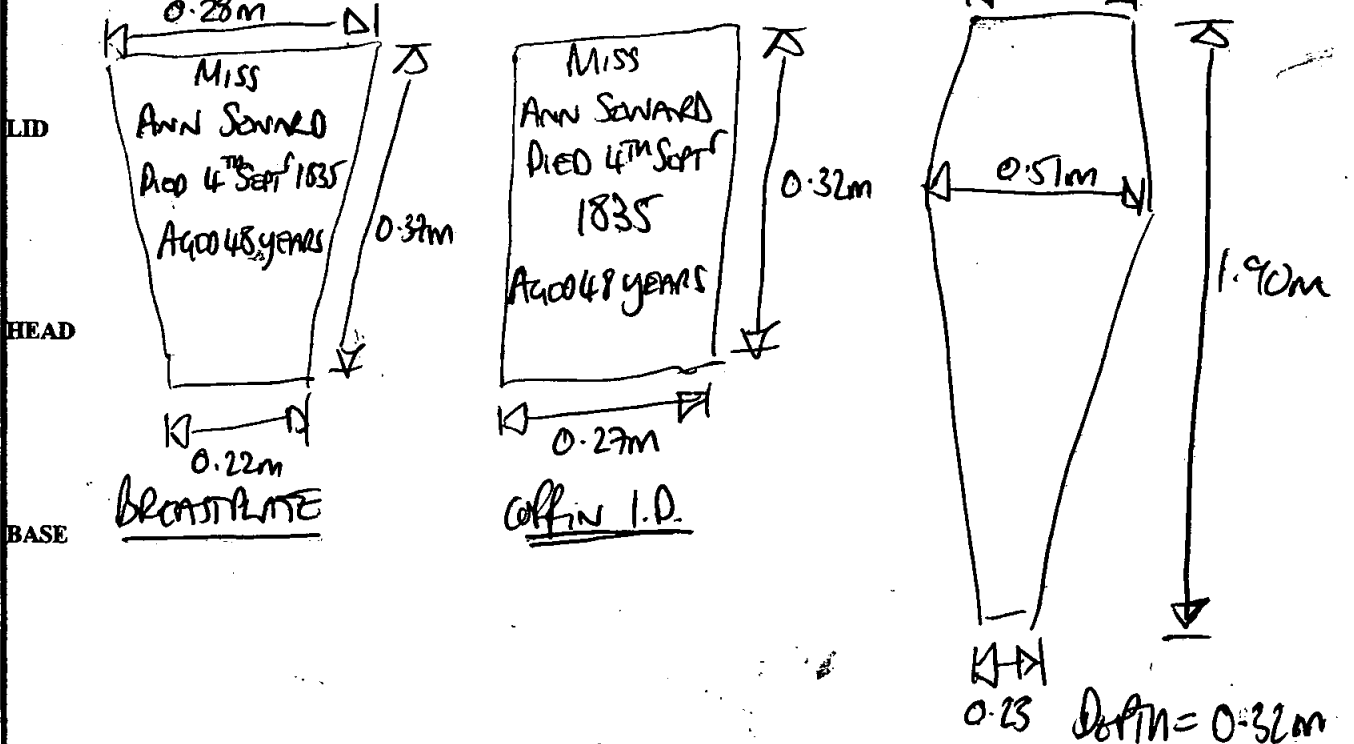 0.28m
MISS
ANN SOWARD
DIED 4TH SEPTr 1835
AGED 48 YEARS
0.37m
0.22m
BREASTPLATE
MISS
ANN SOWARD
DIED 4TH SEPTr
1835
AGED 48 YEARS
0.32m
0.27m
COFFIN I.D.
0.51m
1.90m
0.23
DEPTH = 0.32m
LID
HEAD
BASE